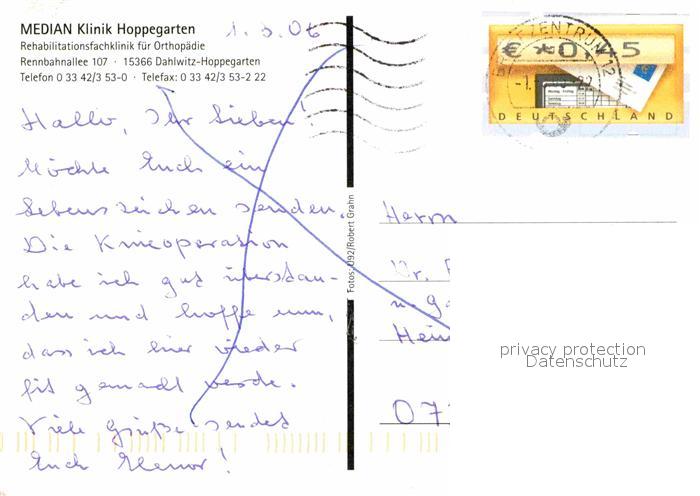 MEDIAN Klinik Hoppegarten
Rehabilitationsfachklinik für Orthopädie
Rennbahnallee 107 · 15366 Dahlwitz-Hoppegarten
Telefon 0 33 42/3 53-0 · Telefax: 0 33 42/3 53-2 22
1.3.06
Hallo, Ihr Lieben!
Möchte Euch ein
Lebenszeichen senden.
Die Knieoperation
habe ich gut überstan-
den und hoffe nun,
dass ich hier wieder
fit gemacht werde.
Viele Grüße sendet
Euch
Fotos: U92/Robert Grahn
BRIEFZENTRUM 12
€ *0,45
DEUTSCHLAND
Herrn
Dr.
Hein
07
privacy protection
Datenschutz